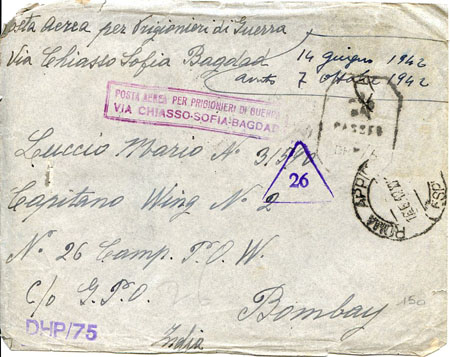 Posta Aerea per Prigionieri di Guerra
Via Chiasso Sofia Bagdad
14 giugno 1942
7 1942
POSTA AEREA PER PRIGIONIERI DI GUERRA
VIA CHIASSO-SOFIA-BAGDAD
PASSED
Luccio Mario N° 31540
26
Capitano Wing N° 2
ROMA APPIO
N° 26 Camp. P.O.W.
C/o G.P.O.
Bombay
150
DHP/75
India